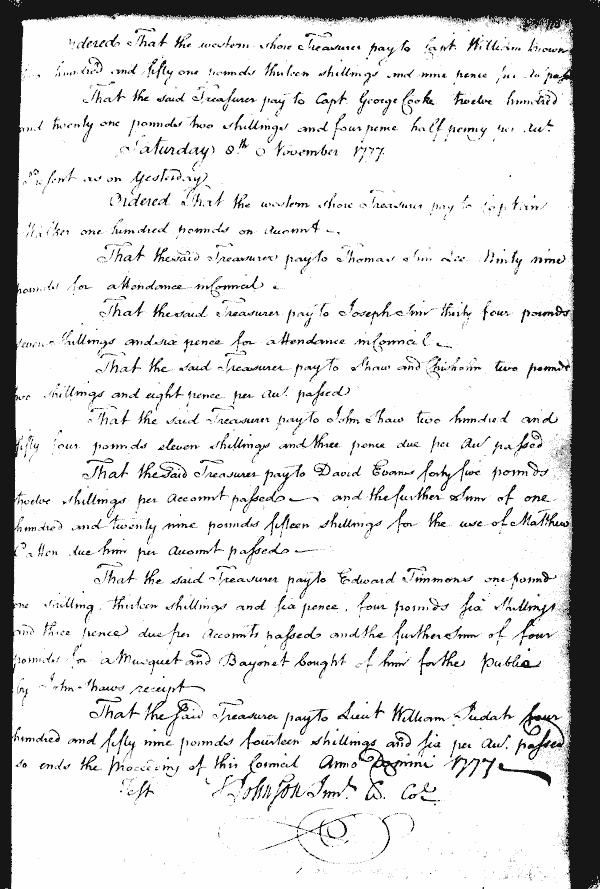 ordered That the western shore Treasurer pay to Capt. William Brown
hundred and fifty one pounds thirteen shillings and nine pence per Au. pass
That the said Treasurer pay to Capt. George Cooke twelve hundred
and twenty one pounds two shillings and four pence half penny per Au.
Saturday 8th November 1777.
Present as on Yesterday
Ordered That the western shore Treasurer pay to Captain
Walker one hundred pounds on Account.
That the said Treasurer pay to Thomas Sim Lee Ninty nine
pounds for attendance in Council.
That the said Treasurer pay to Joseph Sim thirty four pounds
seven Shillings and six pence for attendance in Council.
That the said Treasurer pay to Shaw and Chisholm two pounds
two shillings and eight pence per Au. passed
That the said Treasurer pay to John Shaw two hundred and
fifty four pounds eleven shillings and three pence due per Au. passed
That the Said Treasurer pay to David Evans forty five pounds
twelve shillings per Account passed and the further Sum of one
hundred and twenty nine pounds fifteen shillings for the use of Matthew
Patton due him per Account passed.
That the said Treasurer pay to Edward Timmons one pound
one shilling, thirteen shillings and six pence, four pounds six Shillings
and three pence due per Accounts passed and the further Sum of four
pounds for a Musquet and Bayonet bought of him for the Public
by John Shaws receipt
That the Said Treasurer pay to Lieut William Judah four
hundred and fifty nine pounds fourteen shillings and six per Au. passed
so ends the Proceeding of this Council Anno Domini 1777
Test Johnson Junr. Co